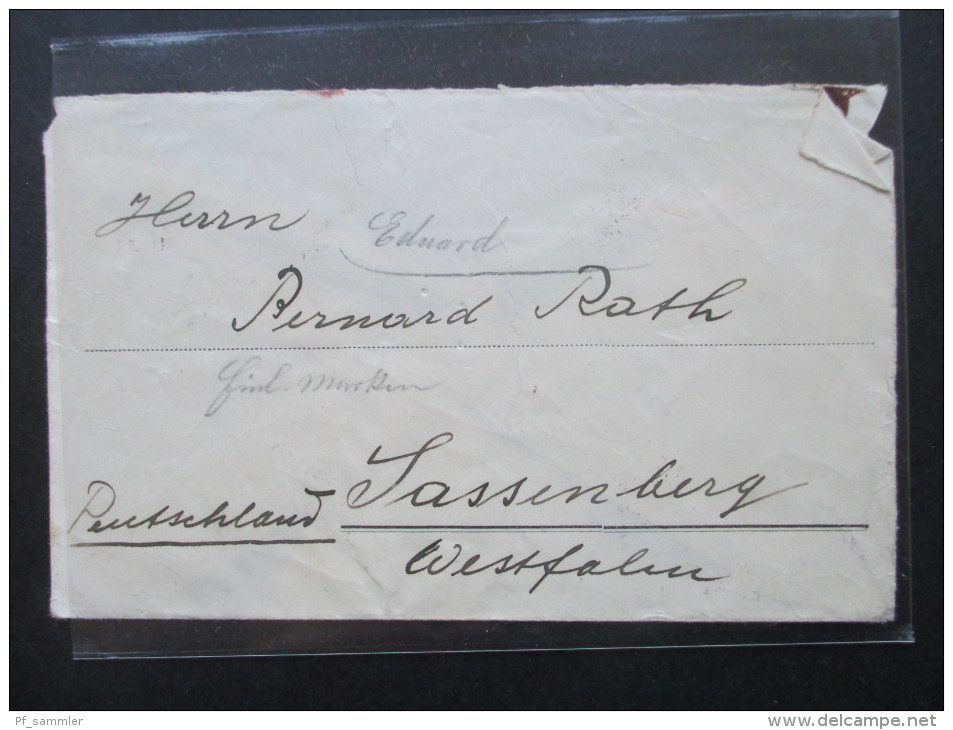 Herrn
Eduard
Bernard Rath
Marken
Sassenberg
Deutschland
Westfalen
Pf_sammler
www.delcampe.net